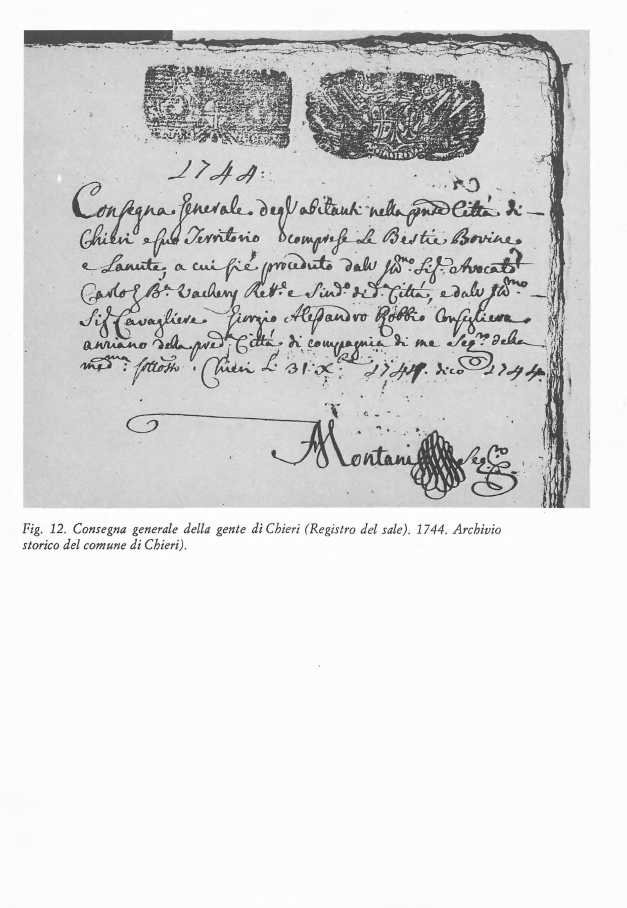 1744:
Consegna Generale degl'abitanti nella pnte Città di
Chieri e suo Territorio comprese Le Bestie Bovine
e Lanute, a cui si è proceduto dall' Ill.mo Sig. Avocato
Carlo Gio B.a Vachery Rett.e e Sind.o di d.a Città, e dall' Ill.mo
Sig. Cavagliere Giorgio Alessandro Robbio Consigliere
anziano della pred.a Città di compagnia di me Seg.ro della
med.ma sottos.to Chieri Li 31 X.bre 1744. dico 1744.
Montani Seg.ro
Fig. 12. Consegna generale della gente di Chieri (Registro del sale). 1744. Archivio
storico del comune di Chieri).